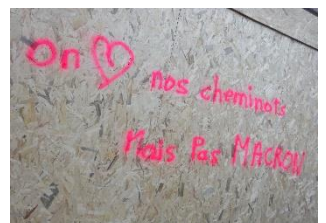 On ♡ nos cheminots
Mais Pas MACRON